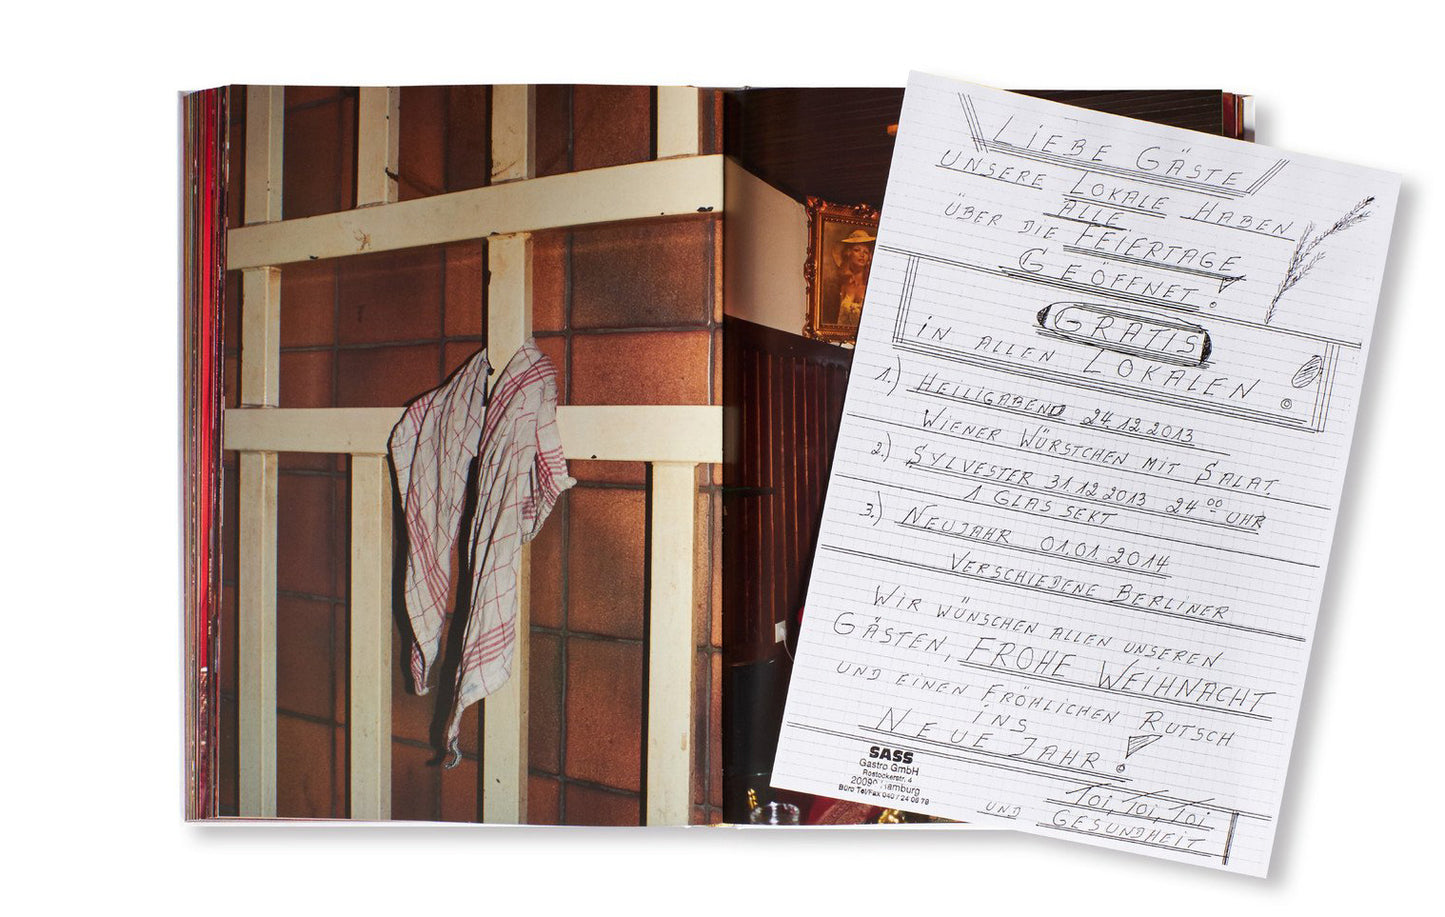 LIEBE GÄSTE
UNSERE LOKALE HABEN
ALLE
ÜBER DIE FEIERTAGE
GEÖFFNET!
GRATIS
IN ALLEN LOKALEN
1.) HEILIGABEND 24.12.2013
WIENER WÜRSTCHEN MIT SALAT.
2.) SYLVESTER 31.12.2013 24⁰⁰ UHR
1 GLAS SEKT
3.) NEUJAHR 01.01.2014
VERSCHIEDENE BERLINER
WIR WÜNSCHEN ALLEN UNSEREN
GÄSTEN, FROHE WEIHNACHT
UND EINEN FRÖHLICHEN RUTSCH
INS
NEUE JAHR!
SASS
Gastro GmbH
Rostockerstr. 4
Hamburg
Büro Tel/Fax 040 / 24 08 78
TOI, TOI, TOI
UND GESUNDHEIT